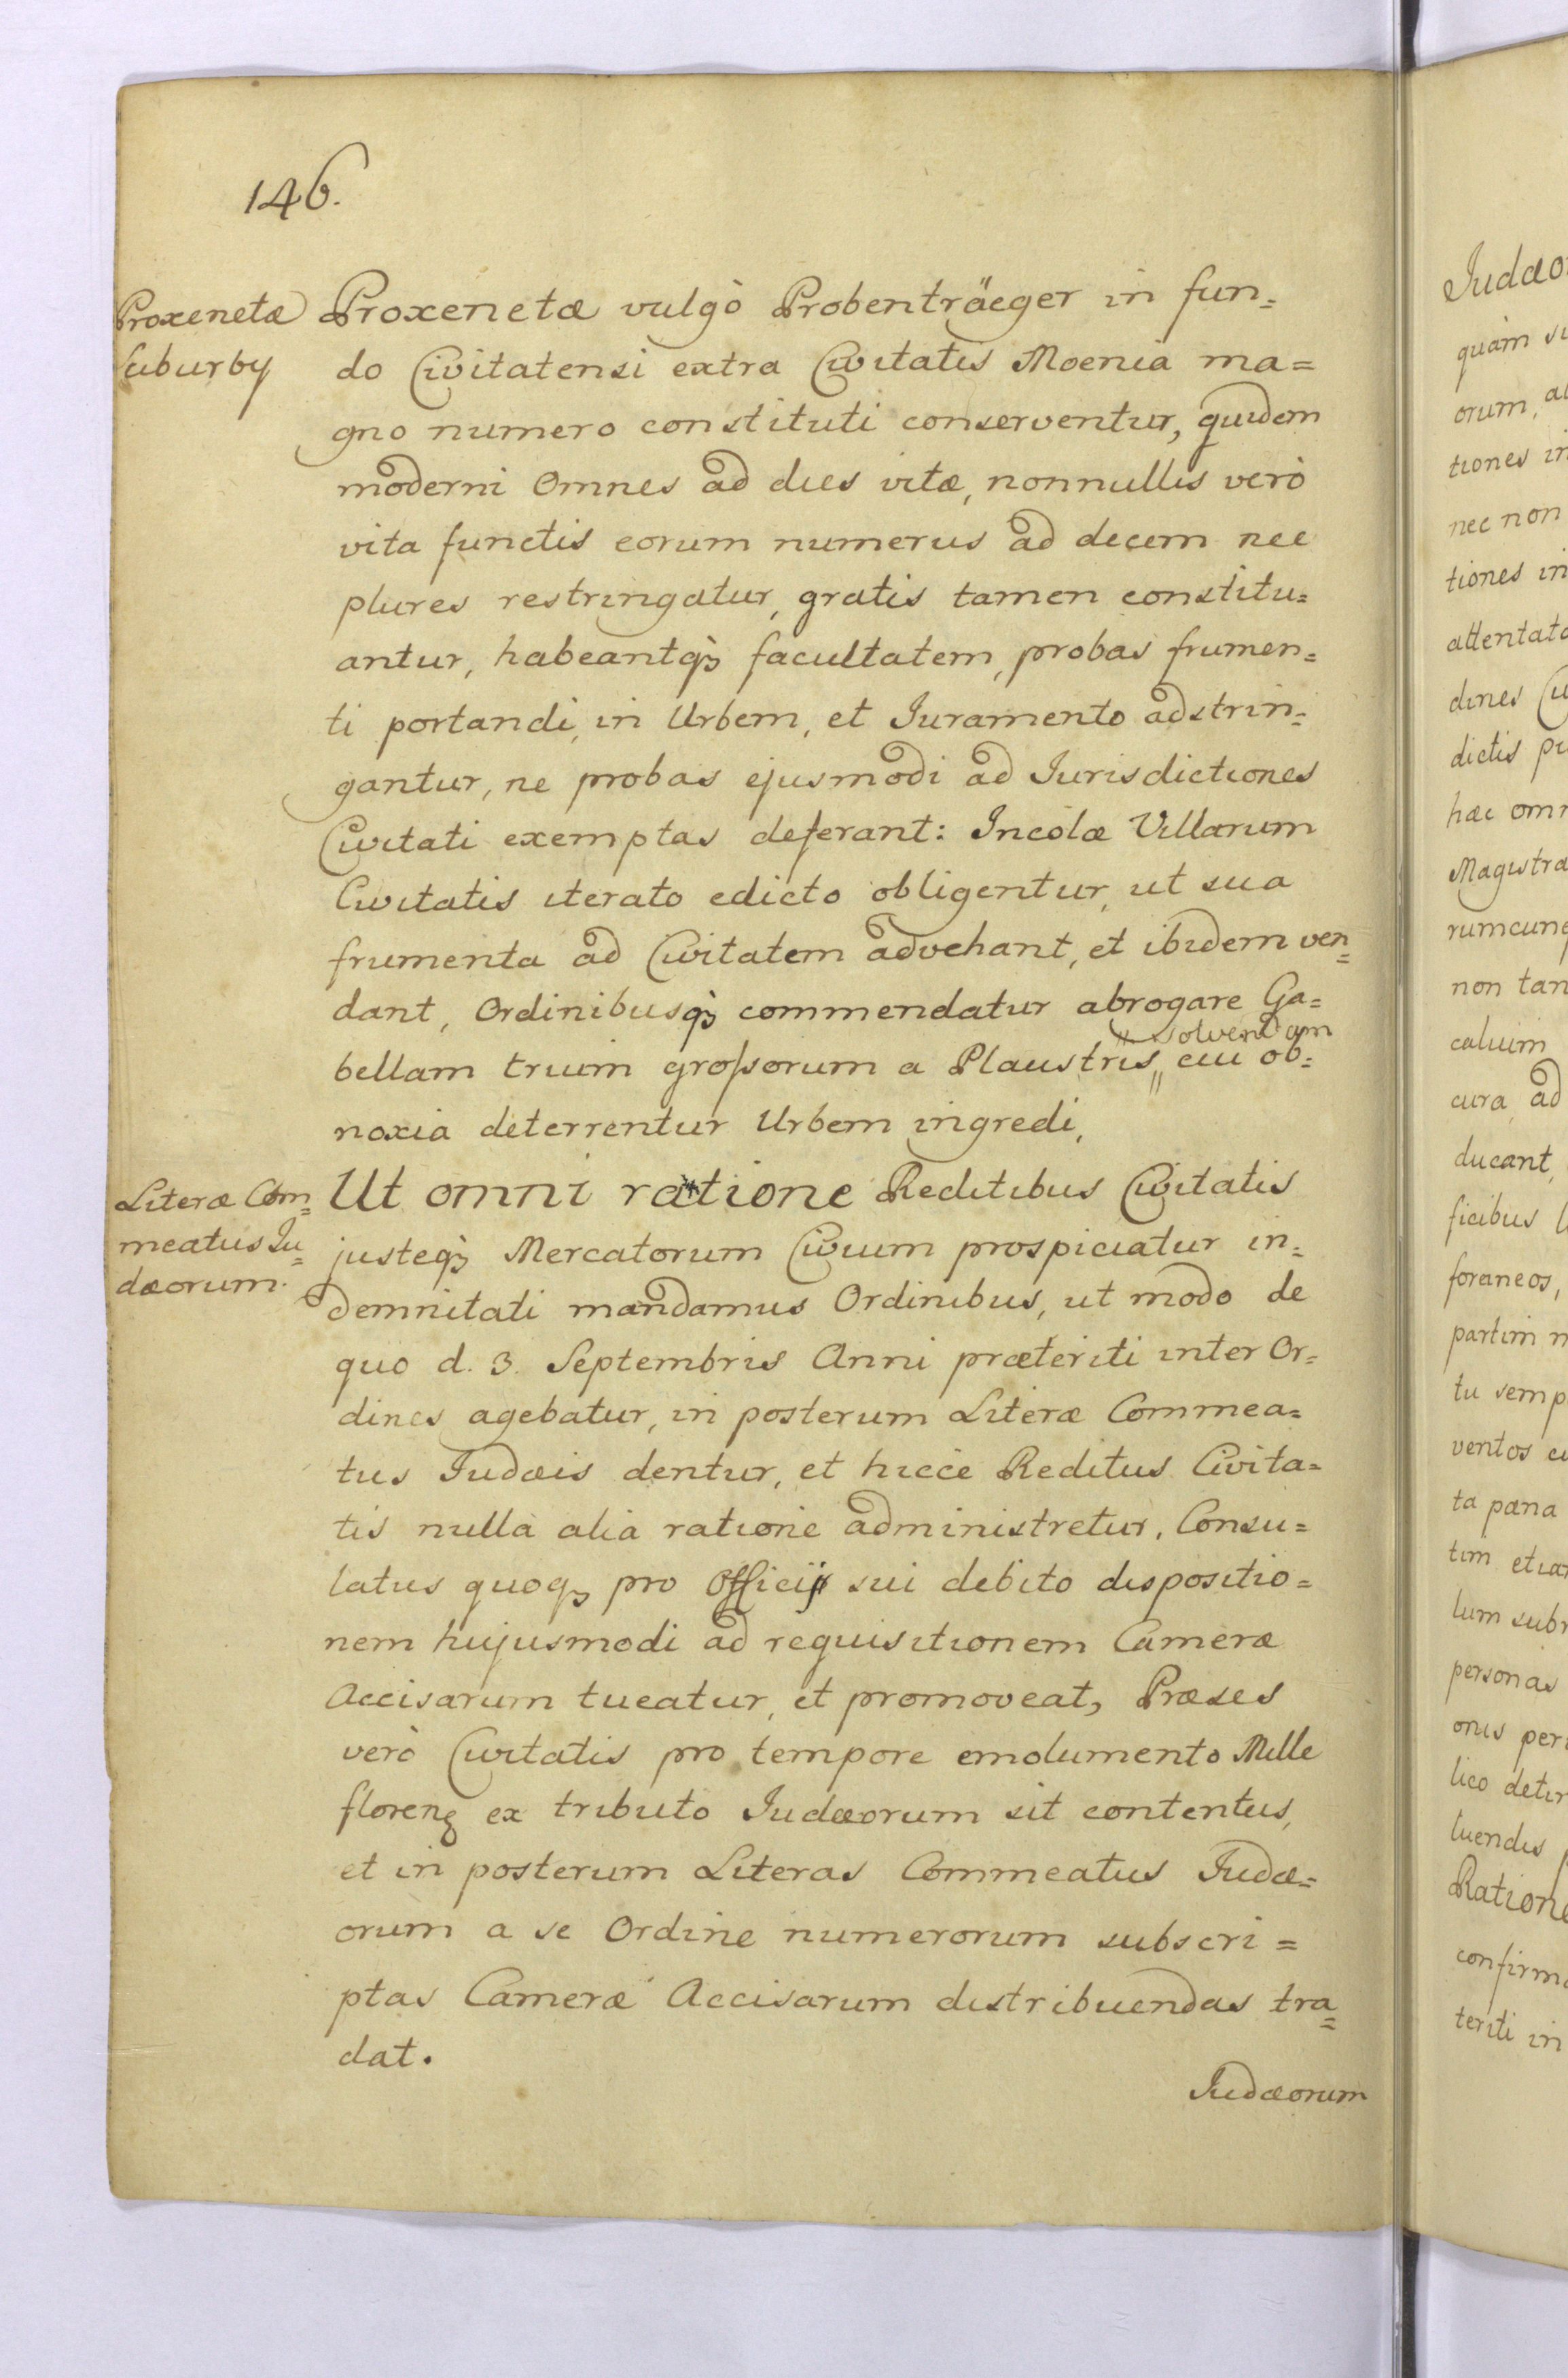 146.
Proxenetæ
suburby
Proxenetæ vulgò Probenträeger in fun=
do Civitatensi extra Civitatis Moenia ma=
gno numero constituti conserventur, quidem
moderni Omnes ad dies vitæ, nonnullis verò
vita functis eorum numerus ad decem nec
plures restringatur, gratis tamen constitu=
antur, habeantqꝫ facultatem, probas frumen=
ti portandi, in Urbem, et Iuramento adstrin=
gantur, ne probas ejusmodi ad Iurisdictiones
Civitati exemptas deferant: Incolæ Villarum
Civitatis iterato edicto obligentur, ut sua
frumenta ad Civitatem advehant, et ibidem ven=
dant, Ordinibusqꝫ commendatur abrogare Ga=
solvendam
bellam trium grossorum a Plaustris cui ob=
noxia deterrentur Urbem ingredi,
Literæ Com=
meatus Iu=
dæorum.
Ut omni ratione Reditibus Civitatis
justeqꝫ Mercatorum Civium prospiciatur in=
demnitati mandamus Ordinibus, ut modo de
quo d. 3. Septembris Anni præteriti inter Or=
dines agebatur, in posterum Literæ Commea=
tus Iudæis dentur, et hicce Reditus Civita=
tis nullà alià ratione administretur, Consu=
latus quoqꝫ pro Officij sui debito dispositio=
nem hujusmodi ad requisitionem Cameræ
Accisarum tueatur, et promoveat, Præses
verò Civitatis pro tempore emolumento Mille
floren ex tributo Iudæorum sit contentus,
et in posterum Literas Commeatus Iudæ=
orum a se Ordine numerorum subscri=
ptas Cameræ Accisarum distribuendas tra=
dat.
Iudæorum
Iudæo
quàm su
orum, a
tiones in
nec non
tiones in
attentat
dines
dictis
hæc omn
Magistra
rumcunq
non tan
caluim
cura ad
ducant,
ficibus
foraneos,
partim
tu semp
ventos
ta pæna
tim etia
lum sub
personas
onis per
lico detin
luendis
Ratione
confirm
teriti in